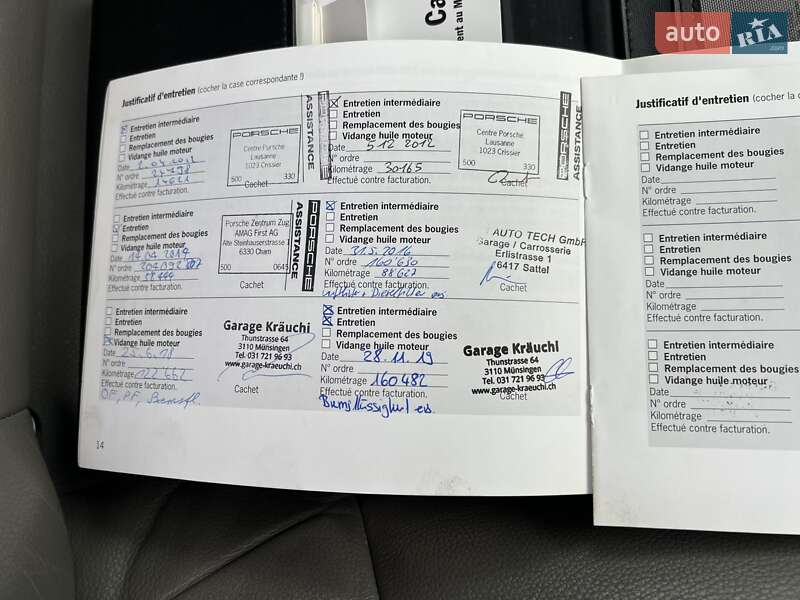 Ca
ent au M
auto RIA .com
Justificatif d'entretien (cocher la case correspondante !)
Entretien intermédiaire
Entretien
Remplacement des bougies
Vidange huile moteur
Date
N° ordre
Kilométrage
Effectué contre facturation.
PORSCHE
Centre Porsche
Lausanne
1023 Crissier
500 330
Cachet
ASSISTANCE
Entretien intermédiaire
Entretien
Remplacement des bougies
Vidange huile moteur
Date 5 12 2012
N° ordre
Kilométrage 30165
Effectué contre facturation.
PORSCHE
Centre Porsche
Lausanne
1023 Crissier
500 330
Cachet
PORSCHE
ASSISTANCE
Entretien intermédiaire
Entretien
Remplacement des bougies
Vidange huile moteur
Date 14 04 2014
N° ordre
Kilométrage
Effectué contre facturation.
Porsche Zentrum Zug
AMAG First AG
Alte Steinhauserstrasse 1
6330 Cham
500 0645
Cachet
PORSCHE
ASSISTANCE
Entretien intermédiaire
Entretien
Remplacement des bougies
Vidange huile moteur
Date 31.5.2016
N° ordre 160 630
Kilométrage 88 627
Effectué contre facturation.
AUTO TECH GmbH
Garage / Carrosserie
Erlistrasse 1
6417 Sattel
Cachet
Entretien intermédiaire
Entretien
Remplacement des bougies
Vidange huile moteur
Date 25.6.18
N° ordre
Kilométrage 122 662
Effectué contre facturation.
Garage Kräuchi
Thunstrasse 64
3110 Münsingen
Tel. 031 721 96 93
www.garage-kraeuchi.ch
Cachet
Entretien intermédiaire
Entretien
Remplacement des bougies
Vidange huile moteur
Date 28.11.19
N° ordre
Kilométrage 160 482
Effectué contre facturation.
Garage Kräuchi
Thunstrasse 64
3110 Münsingen
Tel. 031 721 96 93
www.garage-kraeuchi.ch
Cachet
14
Justificatif d'entretien (cocher la c
Entretien intermédiaire
Entretien
Remplacement des bougies
Vidange huile moteur
Date
N° ordre
Kilométrage
Effectué contre facturation.
Entretien intermédiaire
Entretien
Remplacement des bougies
Vidange huile moteur
Date
N° ordre
Kilométrage
Effectué contre facturation.
Entretien intermédiaire
Entretien
Remplacement des bougies
Vidange huile moteur
Date
N° ordre
Kilométrage
Effectué contre facturation.